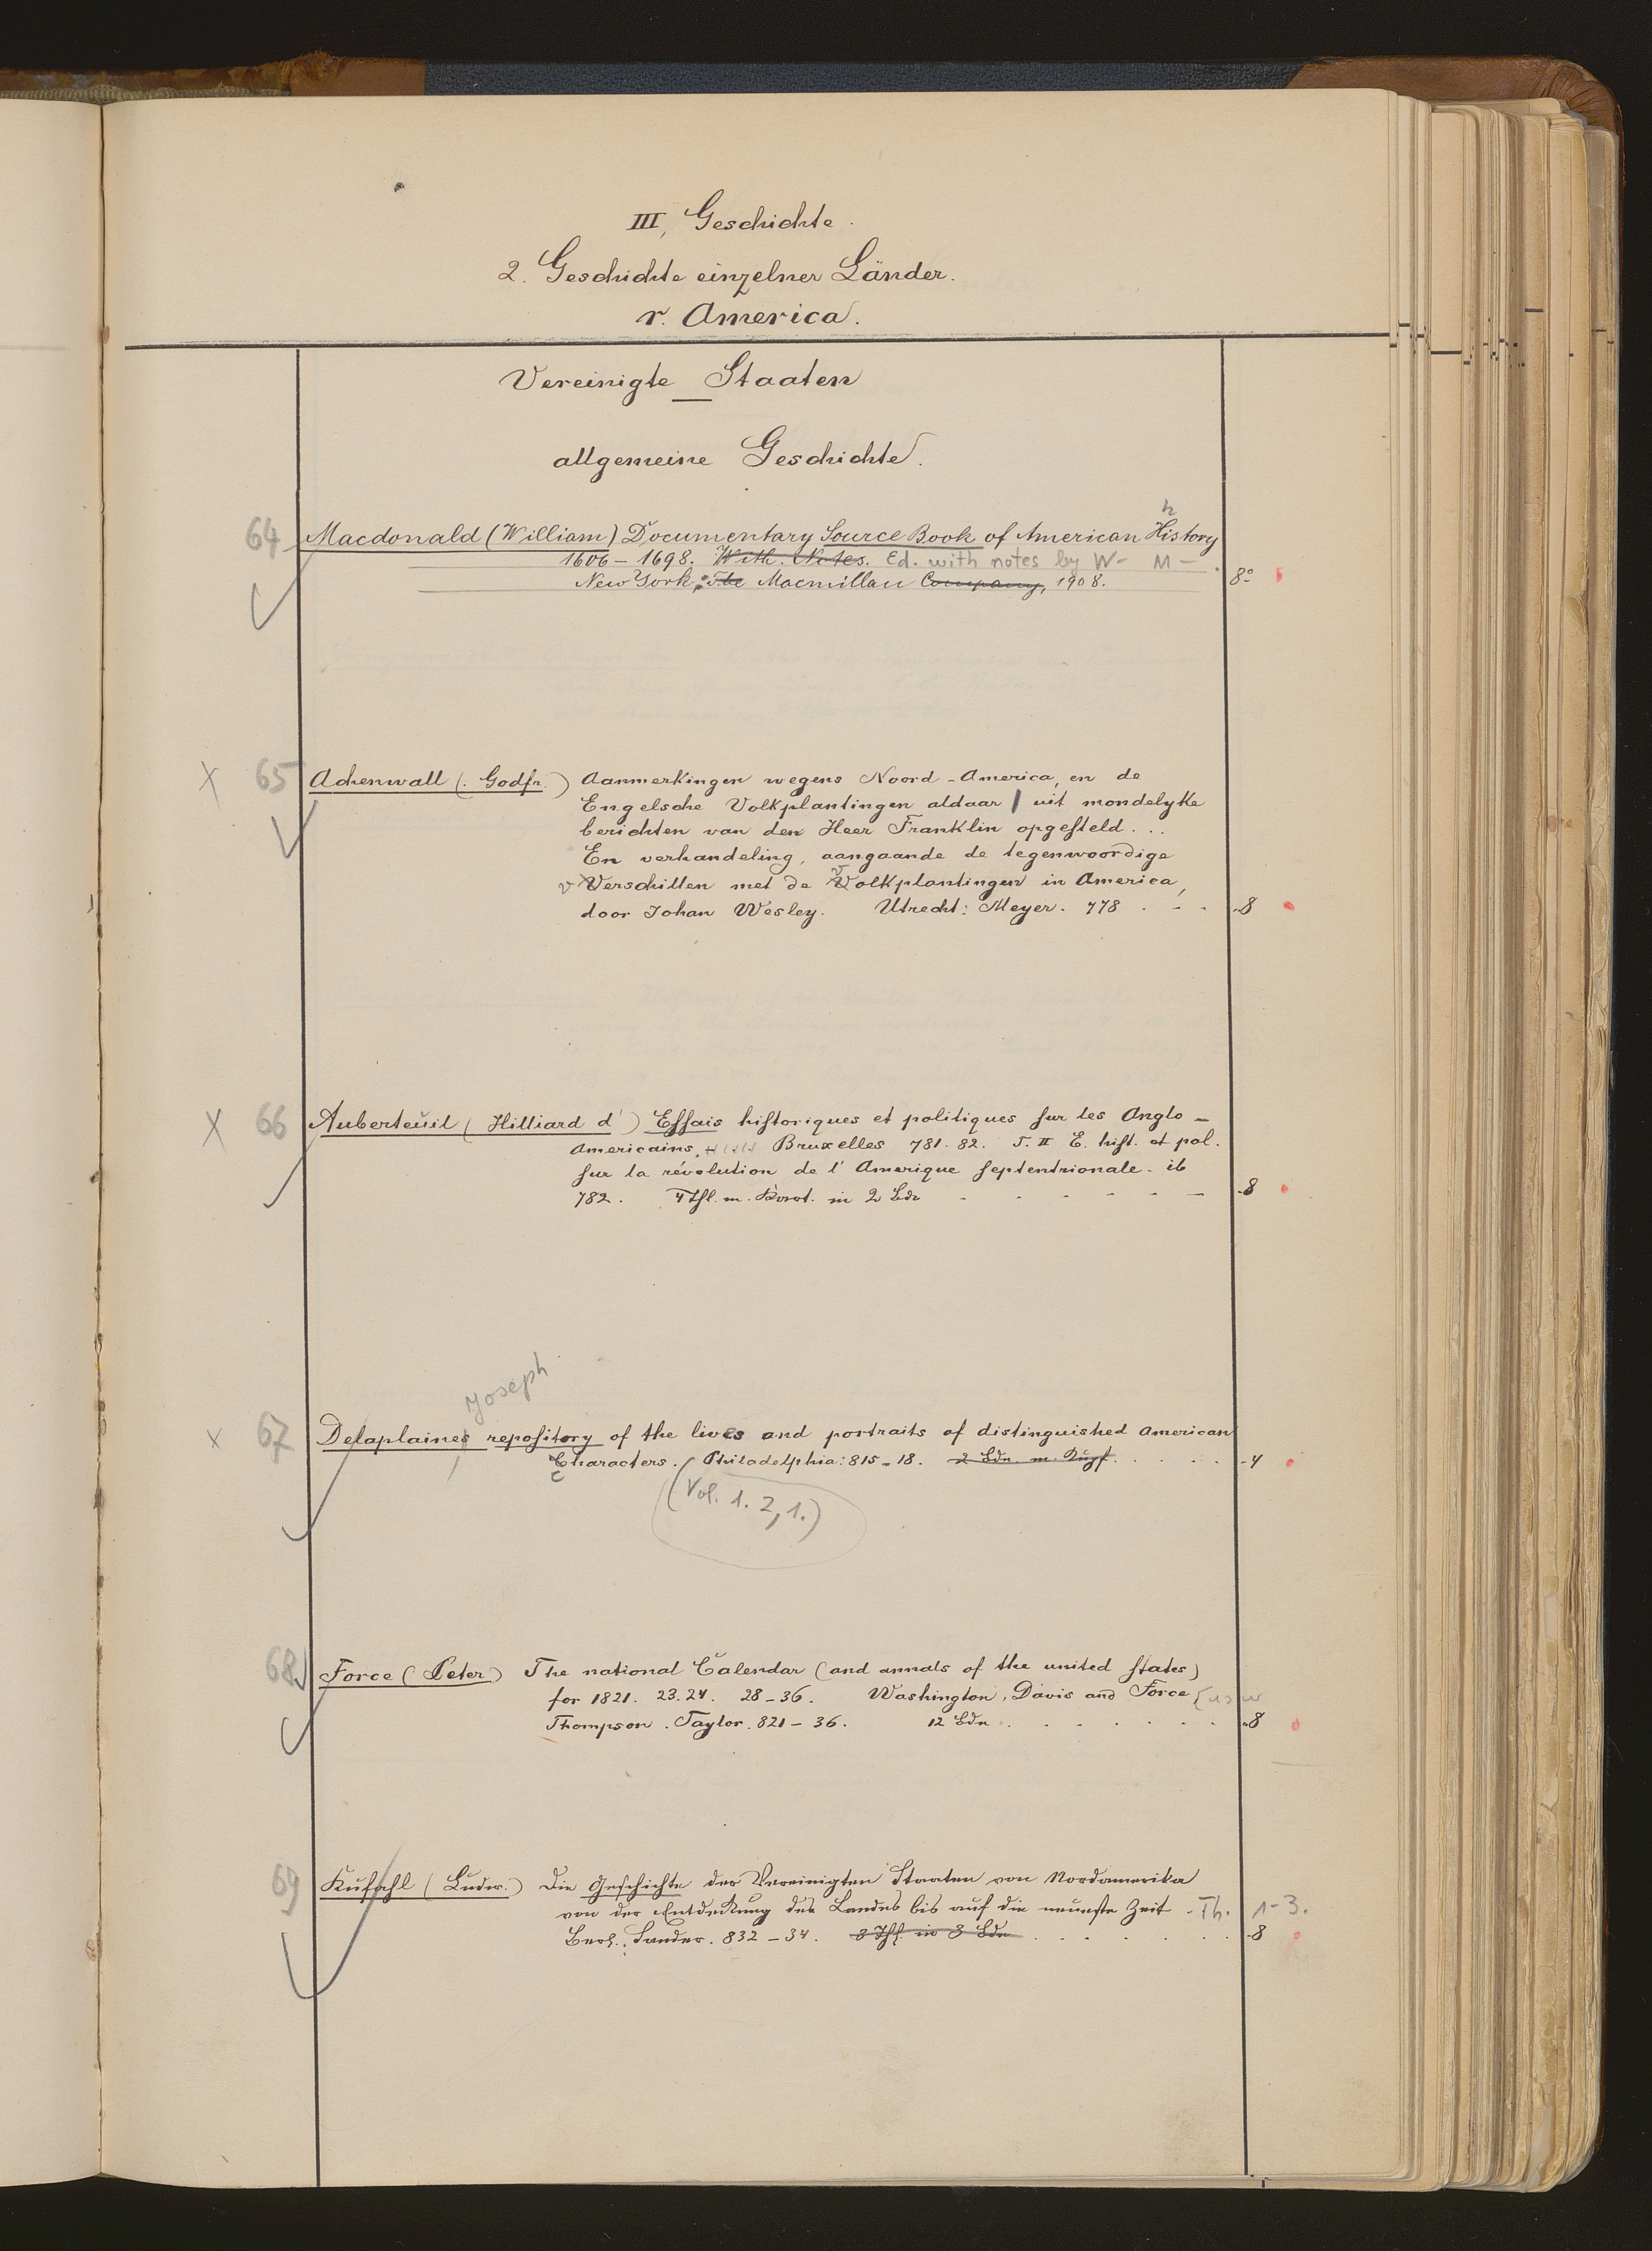 III, Geschichte.
2. Geschichte einzelner Länder.
r. America.
Vereinigte Staaten
allgemeine Geschichte.
h
64 Macdonald (William) Documentary Source Book of American History
1606 – 1698. With. Notes. Ed. with notes by W- M-.
New York: The Macmillan Company, 1908. 8°
X 65 Achenwall (. Godfr.) Aanmerkingen wegens Noord-America, en de
Engelsche Volkplantingen aldaar uit mondelyke
berichten van den Heer Franklin opgesteld. ..
En verhandeling, aangaande de tegenwoordige
v Verschillen met de Volkplantingen in America,
door Johan Wesley. Utrecht: Meyer. 778 . - - -8
X 66 Auberteuil (Hilliard d') Eſſais hiſtoriques et politiques ſur les Anglo-
Americains. Bruxelles 781. 82. T. II E. hiſt. et pol.
ſur la révolution de l'Amerique ſeptentrionale. ib
782. 4 Thl. m. in 2 Bdn - - - - - - -8
Joseph
X 67 Delaplaines repoſitory of the lives and portraits of distinguished american
Characters. Philadelphia: 815-18. 2 Bdn. m. Kupf. . . . . -4
c
(Vol. 1. 2,1.)
68 Force (Peter) The national Calendar (and annals of the united ſtates)
for 1821. 23. 24. 28-36. Washington, Davis and Force
Thompson. Taylor. 821-36. 12 Bdn . . . . . . . -8
69 Kufahl (Ludw.) Die Geſchichte der Vereinigten Staaten von Nordamerika
von der Entdeckung des Landes bis auf die neueſte Zeit - Th. 1-3.
Berl.: Sander. 832-34. 3 Thl. in 3 Bdn . . . . . . . -8